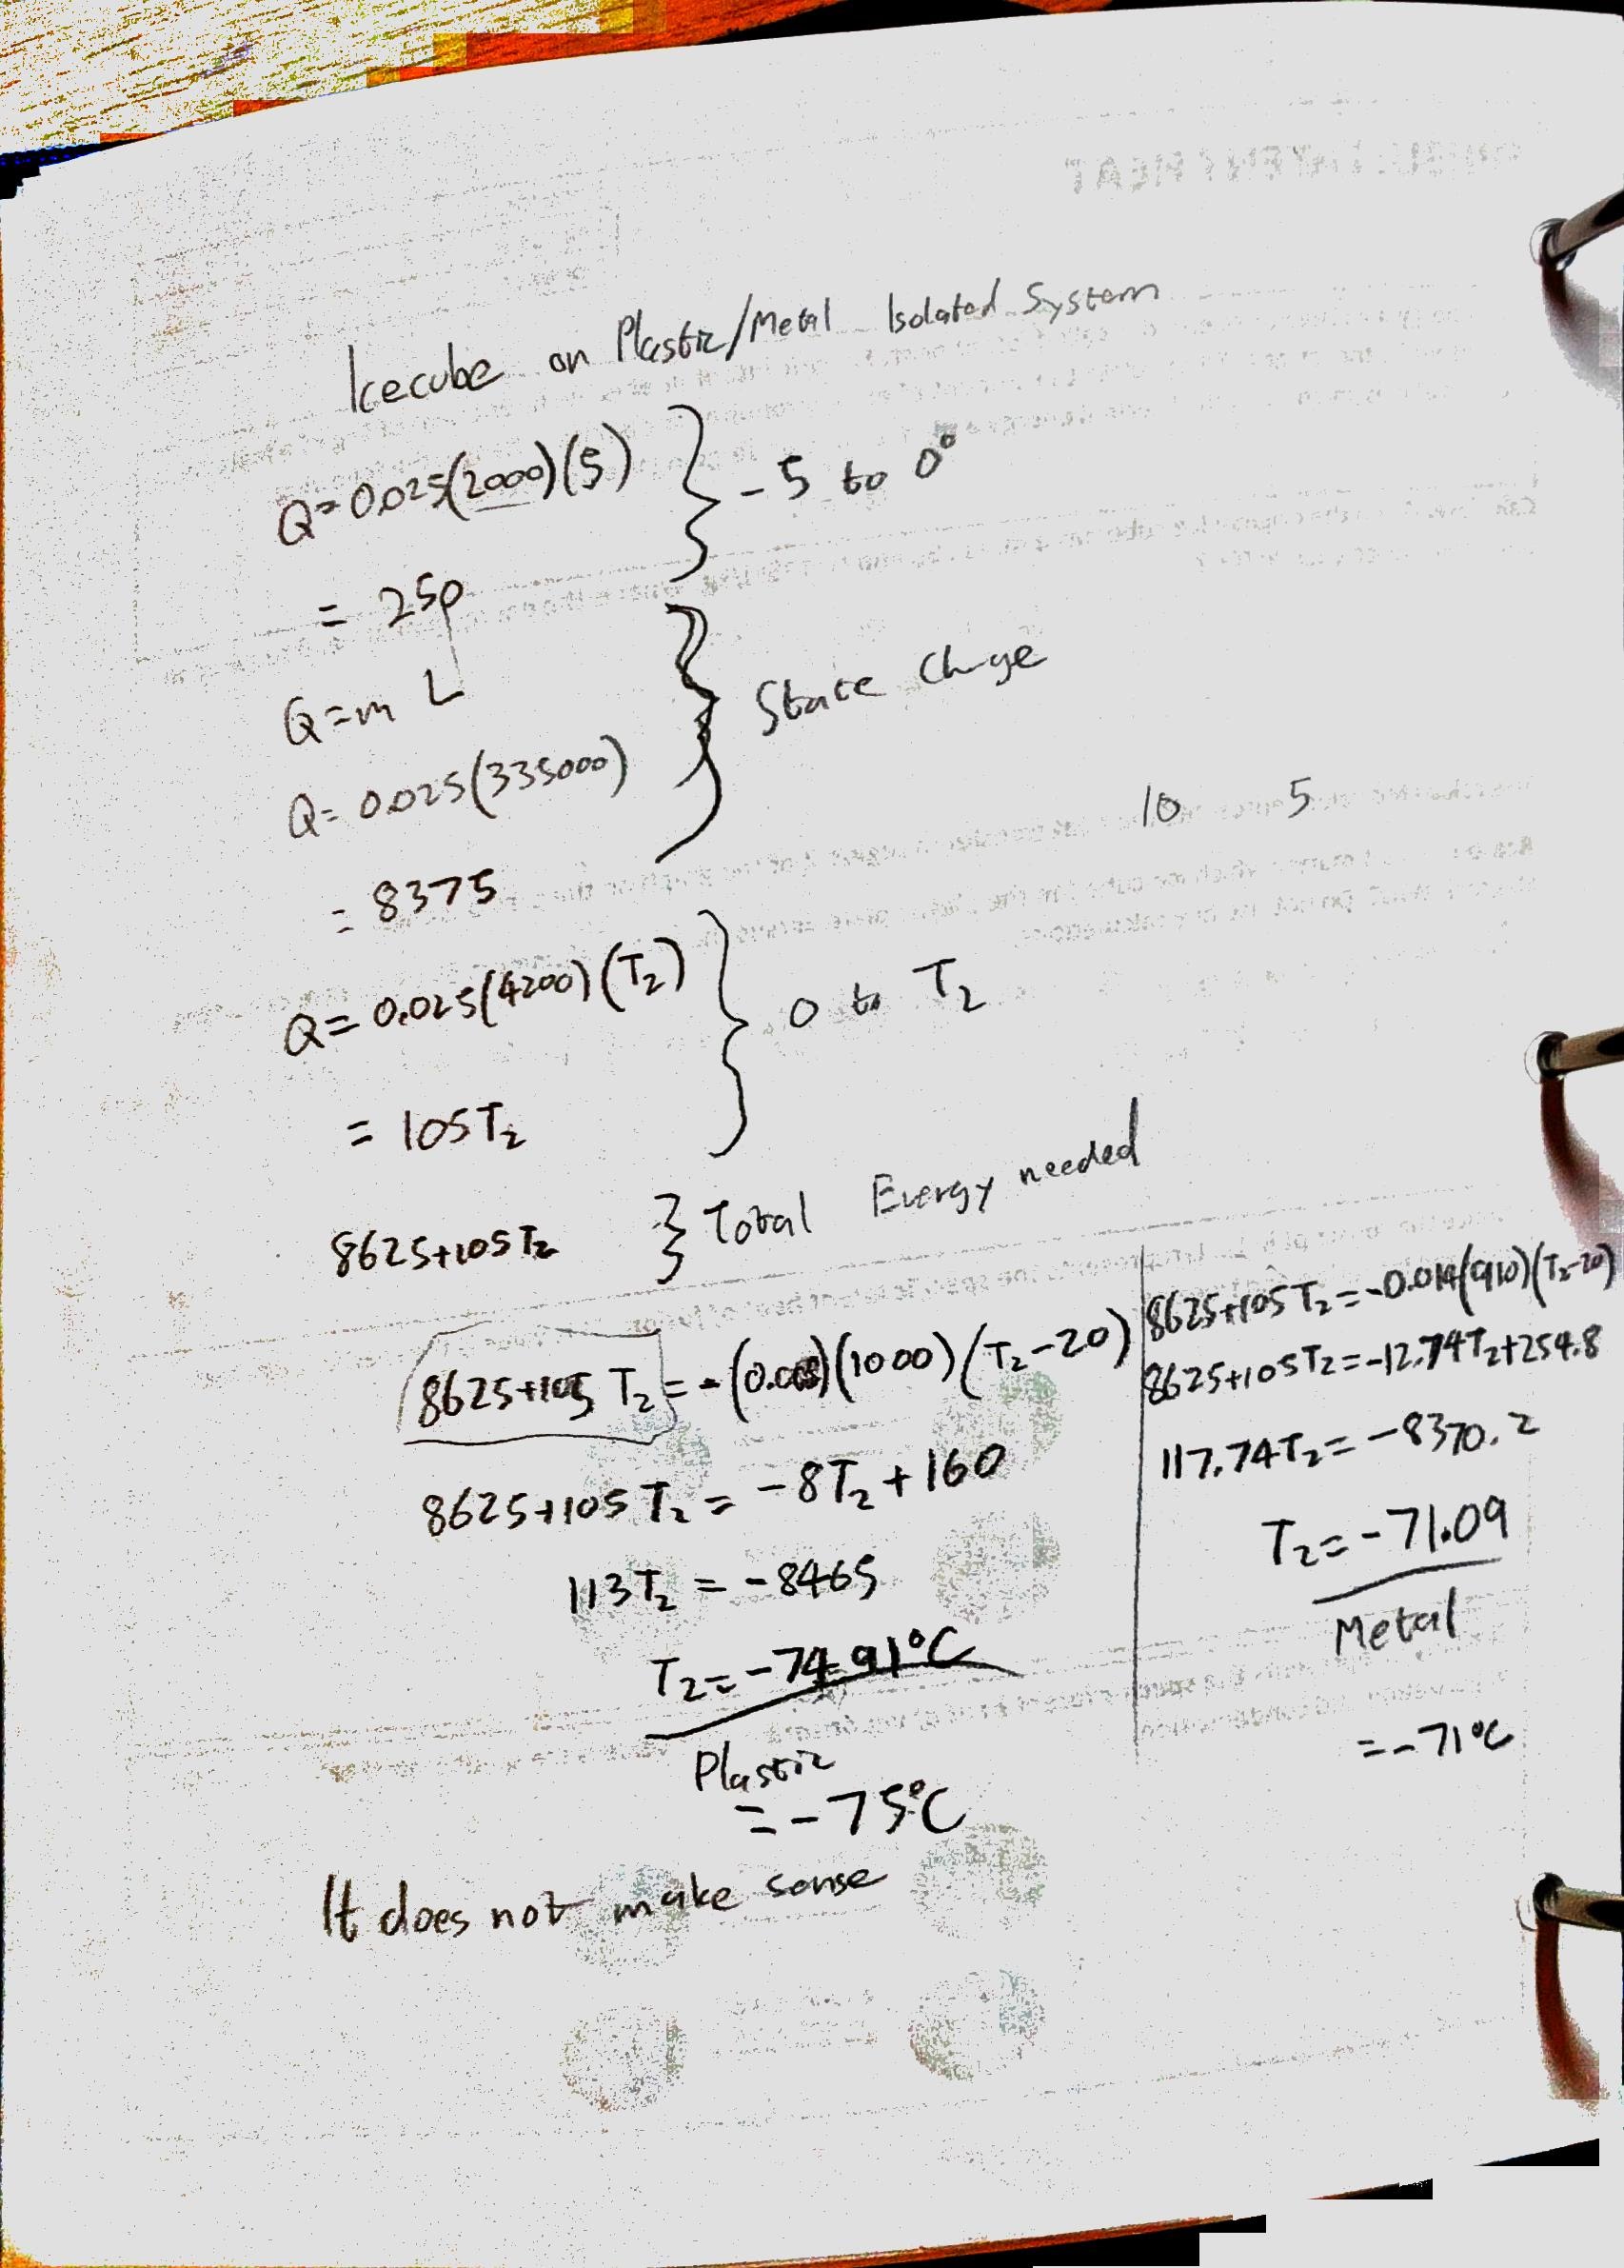 Icecube on Plastic/Metal Isolated System
Q=0.025(2000)(5) } -5 to 0°
= 250
Q=m L
Q=0.025(335000) } State Change
= 8375
10 5
Q=0.025(4200)(T₂) } 0 to T₂
= 105T₂
8625+105T₂ } Total Energy needed
8625+105 T₂=-(0.008)(1000)(T₂-20)
8625+105 T₂ = -8T₂+160
113T₂ = -8465
T₂=-74.91°C
Plastic
=-75°C
8625+105T₂=-0.014(910)(T₂-20)
8625+105T₂=-12.74T₂+254.8
117.74T₂=-8370.2
T₂=-71.09
Metal
=-71°C
It does not make sense